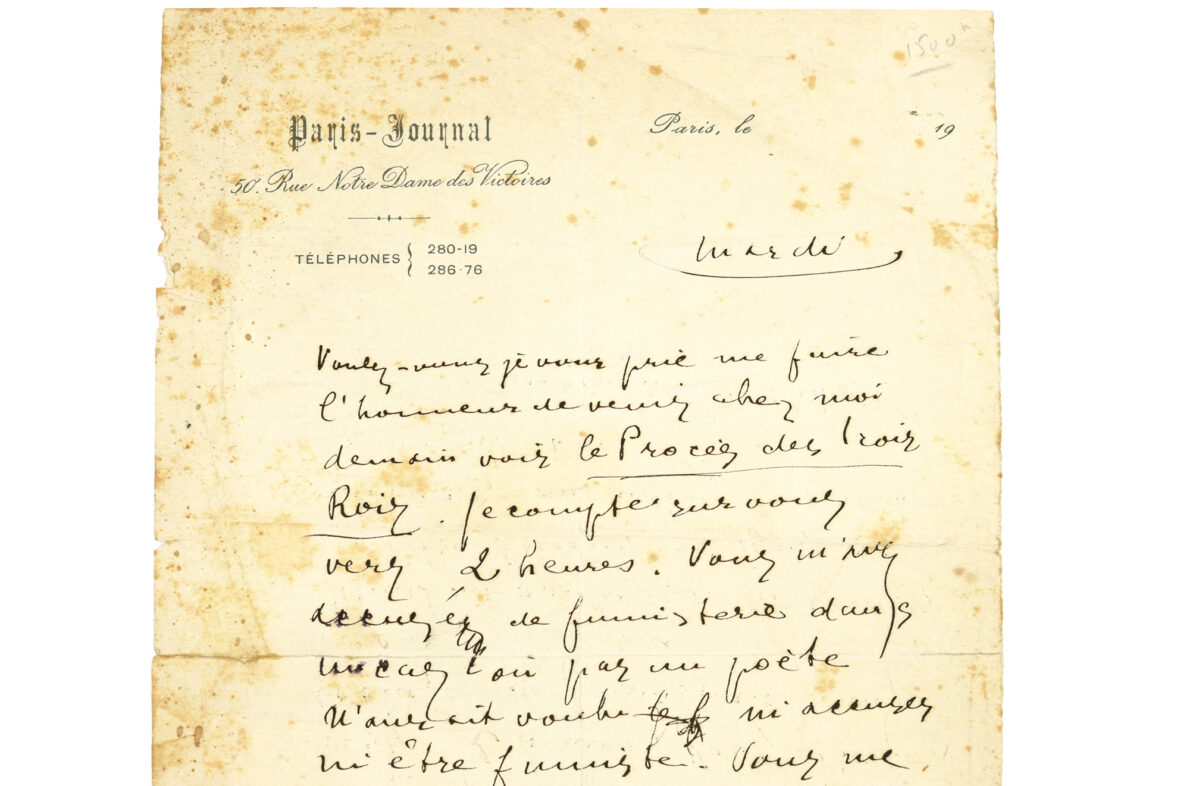 1500
Paris-Journal
50. Rue Notre Dame des Victoires
TÉLÉPHONES 280-19
286-76
Paris, le 19
mardi
Voulez-vous je vous prie me faire
l'honneur de venir chez moi
demain voir le Procès des Trois
Rois. Je compte sur vous
vers 2 heures. Vous m'avez
accusé de fumisterie dans
un cas où pas un poète
n'aurait voulu ni accuser
ni être fumiste. Vous me